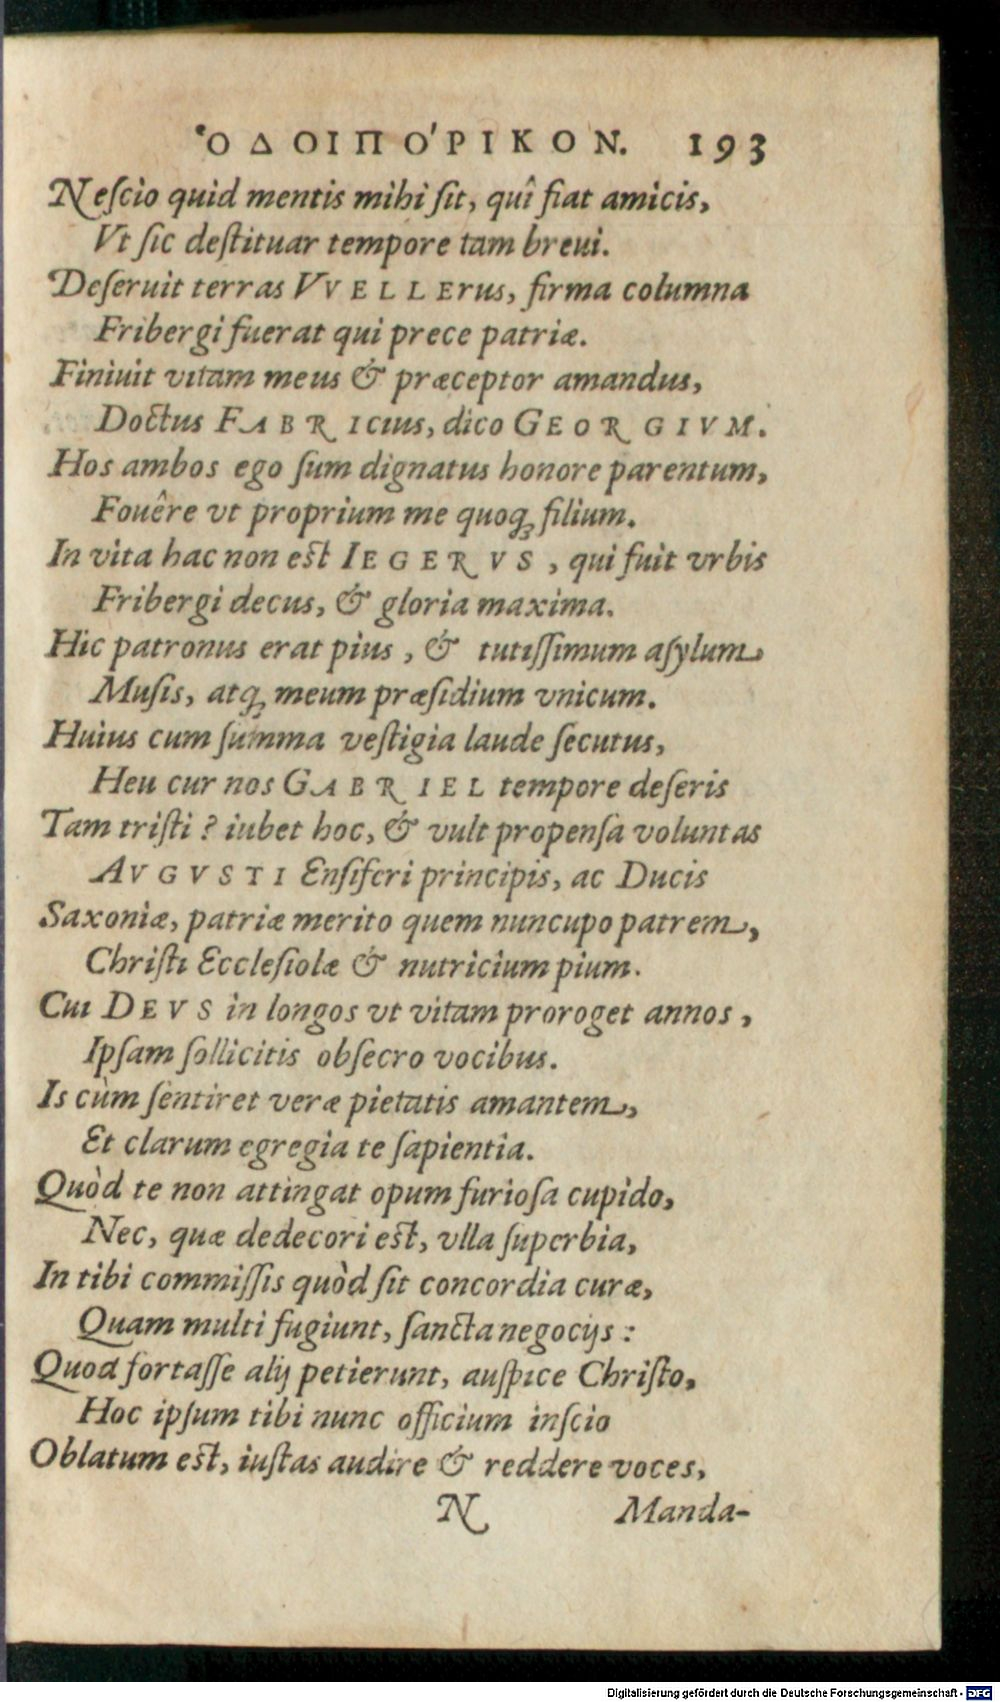 ὉΔΟΙΠΟΡΙΚΟΝ. 193
Neſcio quid mentis mihi ſit, quî fiat amicis,
Vt ſic deſtituar tempore tam breui.
Deſeruit terras VVELLErus, firma columna
Fribergi fuerat qui prece patriæ.
Finiuit vitam meus & præceptor amandus,
Doctus FABRIcius, dico GEORGIVM.
Hos ambos ego ſum dignatus honore parentum,
Fouêre vt proprium me quoq; filium.
In vita hac non eſt IEGERVS, qui fuit vrbis
Fribergi decus, & gloria maxima.
Hic patronus erat pius, & tutiſſimum aſylum
Muſis, atq; meum præſidium vnicum.
Huius cum ſumma veſtigia laude ſecutus,
Heu cur nos GABRIEL tempore deſeris
Tam triſti? iubet hoc, & vult propenſa voluntas
AVGVSTI Enſiferi principis, ac Ducis
Saxoniæ, patriæ merito quem nuncupo patrem,
Chriſti Eccleſiolæ & nutricium pium.
Cui DEVS in longos vt vitam proroget annos,
Ipſam ſollicitis obſecro vocibus.
Is cùm ſentiret veræ pietatis amantem,
Et clarum egregia te ſapientia.
Quòd te non attingat opum furioſa cupido,
Nec, quæ dedecori eſt, vlla ſuperbia,
In tibi commiſſis quòd ſit concordia curæ,
Quam multi fugiunt, ſancta negocijs:
Quod fortaſſe alij petierunt, auſpice Chriſto,
Hoc ipſum tibi nunc officium inſcio
Oblatum eſt, iuſtas audire & reddere voces,
N Manda-
Digitalisierung gefördert durch die Deutsche Forschungsgemeinschaft - DFG